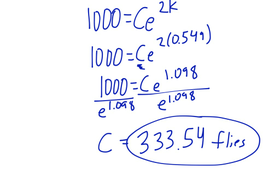 1000=Ce^2k
1000=Ce^2(0.549)
1000=Ce^1.098
e^1.098 e^1.098
C = 333.54 flies